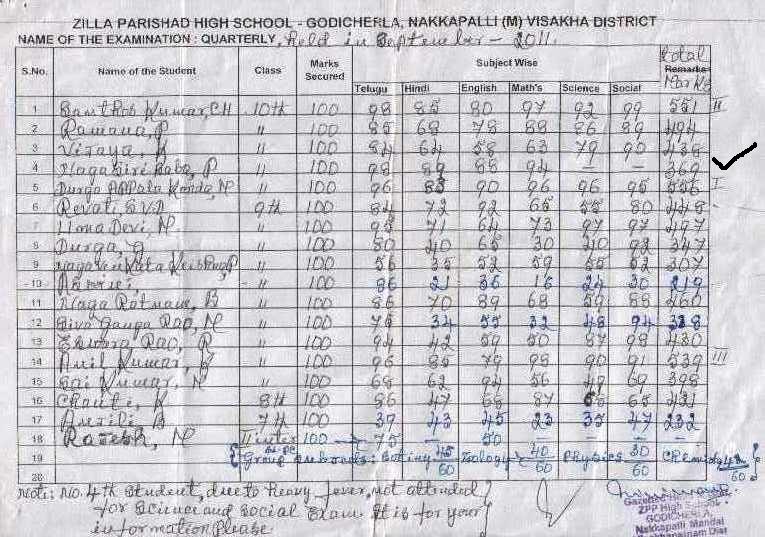 ZILLA PARISHAD HIGH SCHOOL - GODICHERLA, NAKKAPALLI (M) VISAKHA DISTRICT
NAME OF THE EXAMINATION : QUARTERLY, held in September - 2011.
S.No. Name of the Student Class Marks Secured Subject Wise Total Remarks Marks
Telugu Hindi English Math's Science Social
1 Kumar, CH 10th 100 98 85 80 97 92 99 551 II
2 Ramana, P " 100 85 68 78 88 86 89 494
3 Vijaya, " 100 84 64 58 63 79 90 438
4 Naga Giri Babu, P " 100 98 89 88 94 - - 369
5 Durga Appala Konda, N " 100 96 83 90 96 96 95 556 I
6 Revati 9th 100 84 72 92 65 55 80 448
7 Uma Devi, N " 100 95 71 64 73 97 97 497
8 Durga, G " 100 80 40 65 30 40 92 347
9 " 100 56 35 52 59 55 52 307
10 " 100 86 21 36 16 24 30 219
11 Naga Ratnam, B " 100 86 70 89 68 59 88 460
12 Siva Ganga Rao, N " 100 75 34 55 32 48 94 338
13 Eswara Rao, R " 100 94 42 59 50 87 98 430
14 Anil Kumar, " 100 96 85 79 98 90 91 539 III
15 Sai Kumar, N " 100 68 62 94 56 49 69 398
16 K 8th 100 86 47 66 87 65 431
17 B 7th 100 39 43 45 23 35 47 232
18 Rajesh, N II inter 100 → 75 - 50 - - -
19 Bi.PC Group : Botiny 45/60 Zoology 40/60 Physics 30/60 60
20
Note: No. 4th Student, due to heavy fever, not attended
for Science and Social Exam. It is for your
information please
ZPP High School
GODICHERLA,
Nakkapalli Mandal